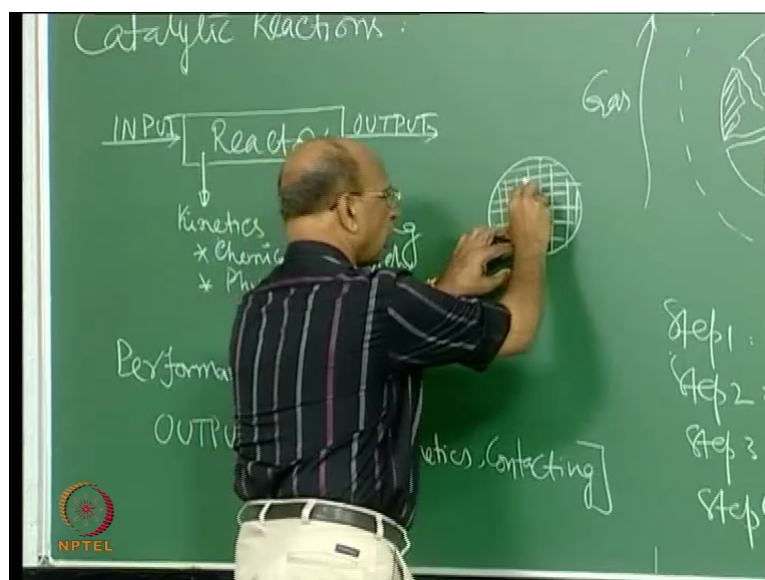 Catalytic Reactions:
INPUT Reactor OUTPUT
Gas
Kinetics
* Chemic
* Ph
Performa
OUTPU etics, Contacting]
Step 1:
Step 2:
Step 3
Step
NPTEL